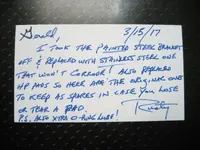 Gerald, 3/15/17
I TOOK THE PAINTED STEEL BRACKET
OFF & REPLACED WITH STAINLESS STEEL ONE
THAT WON'T CORRODE! ALSO REPLACED
HP HAS SO HERE ARE THE ORIGINAL ONES
TO KEEP AS SPARES IN CASE YOU LOSE
OR TEAR A PAD.
P.S. ALSO XTRA O-RING LUBE! Rusty